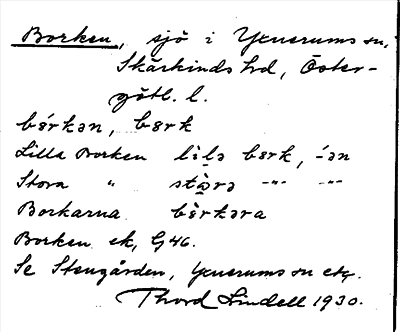 Borken, sjö i Yxnerums sn,
Skärkinds hd, Öster-
götl. l.
bórkən, bərk
Lilla Borken lilə bərk, -́ən
Stora " stòrə -"- -"-
Borkarna bə̀rkəra
Borken ek, G46.
Se Stengården, Yxnerums sn etc.
Thord Lindell 1930.